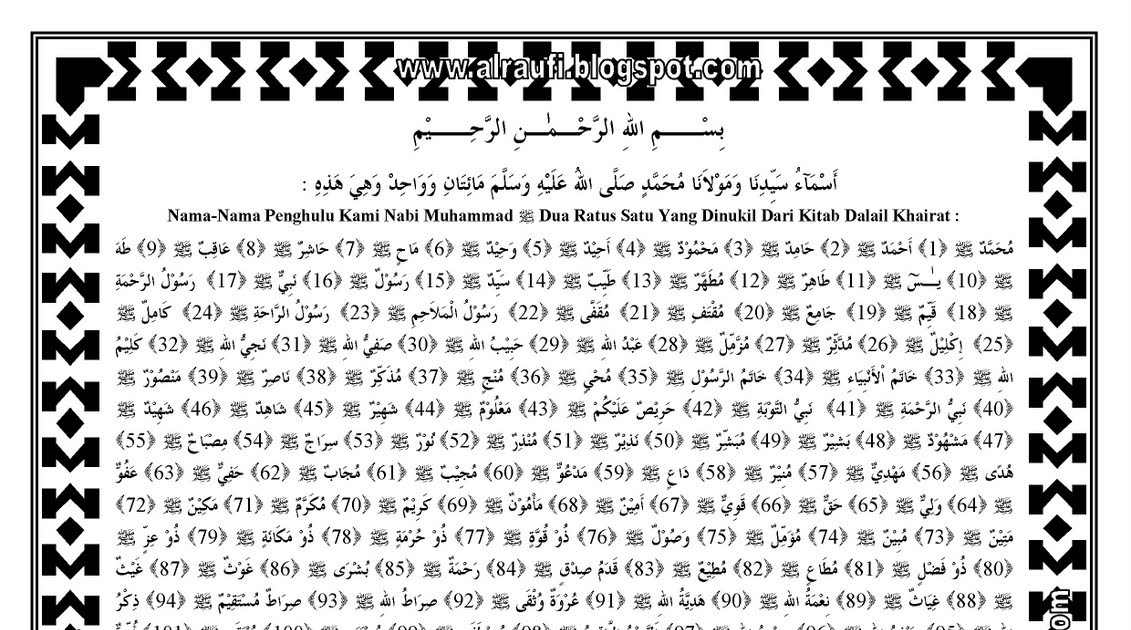 www.alraufi.blogspot.com
بِسْــــمِ اللهِ الرَّحْـــمٰــنِ الرَّحِـــــيْمِ
أَسْمَآءُ سَيِّدِنَا وَمَوْلاَنَا مُحَمَّدٍ صَلَّى اللهُ عَلَيْهِ وَسَلَّمَ مَائِتَانِ وَوَاحِدٌ وَهِيَ هَذِهِ :
Nama-Nama Penghulu Kami Nabi Muhammad ﷺ Dua Ratus Satu Yang Dinukil Dari Kitab Dalail Khairat :
مُحَمَّدٌ ﷺ ﴿1﴾ أَحْمَدٌ ﷺ ﴿2﴾ حَامِدٌ ﷺ ﴿3﴾ مَحْمُوْدٌ ﷺ ﴿4﴾ أَحِيْدٌ ﷺ ﴿5﴾ وَحِيْدٌ ﷺ ﴿6﴾ مَاحٍ ﷺ ﴿7﴾ حَاشِرٌ ﷺ ﴿8﴾ عَاقِبٌ ﷺ ﴿9﴾ طَهَ
ﷺ ﴿10﴾ يٰـسٓ ﷺ ﴿11﴾ طَاهِرٌ ﷺ ﴿12﴾ مُطَهَّرٌ ﷺ ﴿13﴾ طَيِّبٌ ﷺ ﴿14﴾ سَيِّدٌ ﷺ ﴿15﴾ رَسُوْلٌ ﷺ ﴿16﴾ نَبِيٌّ ﷺ ﴿17﴾ رَسُوْلُ الرَّحْمَةِ
ﷺ ﴿18﴾ قَيِّمٌ ﷺ ﴿19﴾ جَامِعٌ ﷺ ﴿20﴾ مُقْتَفٍ ﷺ ﴿21﴾ مُقَفَّى ﷺ ﴿22﴾ رَسُوْلُ الْمَلاَحِمِ ﷺ ﴿23﴾ رَسُوْلُ الرَّاحَةِ ﷺ ﴿24﴾ كَامِلٌ ﷺ
﴿25﴾ إِكْلِيْلٌ ﷺ ﴿26﴾ مُدَّثِّرٌ ﷺ ﴿27﴾ مُزَّمِّلٌ ﷺ ﴿28﴾ عَبْدُ اللهِ ﷺ ﴿29﴾ حَبِيْبُ اللهِ ﷺ ﴿30﴾ صَفِيُّ اللهِ ﷺ ﴿31﴾ نَجِيُّ اللهِ ﷺ ﴿32﴾ كَلِيْمُ
اللهِ ﷺ ﴿33﴾ خَاتَمُ اْلأَنْبِيَاءِ ﷺ ﴿34﴾ خَاتَمُ الرَّسُوْلِ ﷺ ﴿35﴾ مُحْيٍ ﷺ ﴿36﴾ مُنْجٍ ﷺ ﴿37﴾ مُذَكِّرٌ ﷺ ﴿38﴾ نَاصِرٌ ﷺ ﴿39﴾ مَنْصُوْرٌ ﷺ
﴿40﴾ نَبِيُّ الرَّحْمَةِ ﷺ ﴿41﴾ نَبِيُّ التَّوْبَةِ ﷺ ﴿42﴾ حَرِيْصٌ عَلَيْكُمْ ﷺ ﴿43﴾ مَعْلُوْمٌ ﷺ ﴿44﴾ شَهِيْرٌ ﷺ ﴿45﴾ شَاهِدٌ ﷺ ﴿46﴾ شَهِيْدٌ ﷺ
﴿47﴾ مَشْهُوْدٌ ﷺ ﴿48﴾ بَشِيْرٌ ﷺ ﴿49﴾ مُبَشِّرٌ ﷺ ﴿50﴾ نَذِيْرٌ ﷺ ﴿51﴾ مُنْذِرٌ ﷺ ﴿52﴾ نُوْرٌ ﷺ ﴿53﴾ سِرَاجٌ ﷺ ﴿54﴾ مِصْبَاحٌ ﷺ ﴿55﴾
هُدًى ﷺ ﴿56﴾ مَهْدِيٌّ ﷺ ﴿57﴾ مُنِيْرٌ ﷺ ﴿58﴾ دَاعٍ ﷺ ﴿59﴾ مَدْعُوٌّ ﷺ ﴿60﴾ مُجِيْبٌ ﷺ ﴿61﴾ مُجَابٌ ﷺ ﴿62﴾ حَفِيٌّ ﷺ ﴿63﴾ عَفُوٌّ
ﷺ ﴿64﴾ وَلِيٌّ ﷺ ﴿65﴾ حَقٌّ ﷺ ﴿66﴾ قَوِيٌّ ﷺ ﴿67﴾ أَمِيْنٌ ﷺ ﴿68﴾ مَأْمُوْنٌ ﷺ ﴿69﴾ كَرِيْمٌ ﷺ ﴿70﴾ مُكَرَّمٌ ﷺ ﴿71﴾ مَكِيْنٌ ﷺ ﴿72﴾
مَتِيْنٌ ﷺ ﴿73﴾ مُبِيْنٌ ﷺ ﴿74﴾ مُؤَمِّلٌ ﷺ ﴿75﴾ وَصُوْلٌ ﷺ ﴿76﴾ ذُوْ قُوَّةٍ ﷺ ﴿77﴾ ذُوْ حُرْمَةٍ ﷺ ﴿78﴾ ذُوْ مَكَانَةٍ ﷺ ﴿79﴾ ذُوْ عِزٍّ ﷺ
﴿80﴾ ذُوْ فَضْلٍ ﷺ ﴿81﴾ مُطَاعٍ ﷺ ﴿82﴾ مُطِيْعٌ ﷺ ﴿83﴾ قَدَمُ صِدْقٍ ﷺ ﴿84﴾ رَحْمَةٌ ﷺ ﴿85﴾ بُشْرَى ﷺ ﴿86﴾ غَوْثٌ ﷺ ﴿87﴾ غَيْثٌ
ﷺ ﴿88﴾ غِيَاثٌ ﷺ ﴿89﴾ نِعْمَةُ اللهِ ﷺ ﴿90﴾ هَدِيَّةُ اللهِ ﷺ ﴿91﴾ عُرْوَةٌ وُثْقَى ﷺ ﴿92﴾ صِرَاطُ اللهِ ﷺ ﴿93﴾ صِرَاطٌ مُسْتَقِيْمٌ ﷺ ﴿94﴾ ذِكْرُ